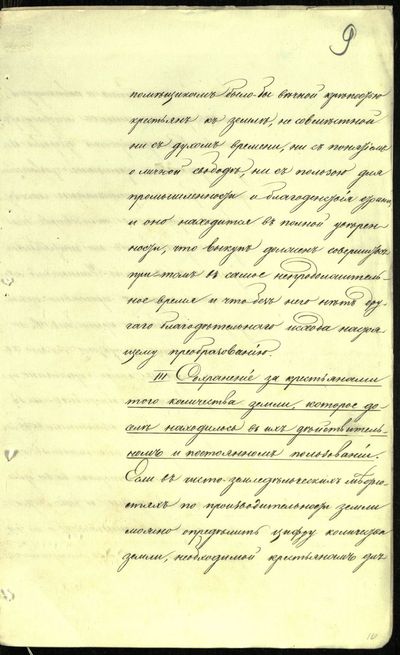 9
помѣщикамъ было-бы вѣчной крѣпостью
крестьянъ къ землѣ, не совмѣстной
ни съ духомъ времени, ни съ понятіемъ
о личной свободѣ, ни съ пользою для
промышленности и благоденствія страны
и оно находится въ полной увѣрен-
ности, что выкупъ долженъ совершиться
при томъ въ самое непродолжитель-
ное время и что безъ него нѣтъ дру-
гаго благодѣтельнаго исхода настоя-
щему преобразованію.
III Сохраненіе за крестьянами
того количества земли, которое до-
селѣ находилось въ ихъ дѣйствитель-
номъ и постоянномъ пользованіи.
Если въ чисто-земледѣльческихъ мѣстно-
стяхъ по производительности земли
можно опредѣлить цифру количества
земли, необходимой крестьянамъ для
10